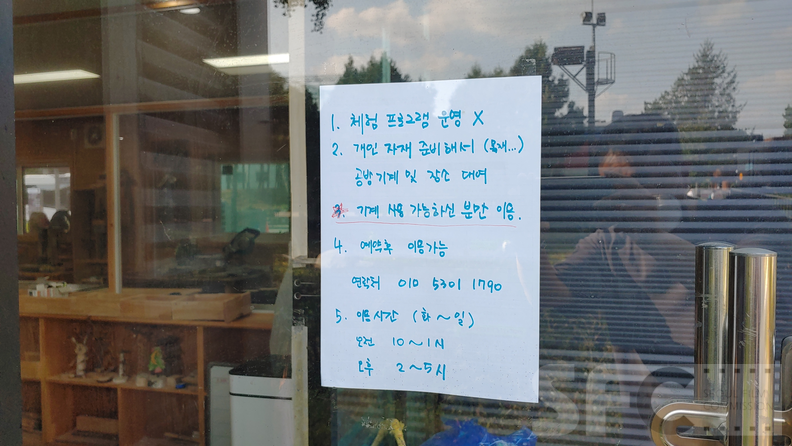 1. 체험 프로그램 운영 X
2. 개인 자재 준비해서 (목재...)
공방기계 및 장소 대여
3. 기계 사용 가능하신 분만 이용.
4. 예약후 이용가능
연락처 010 5301 1790
5. 이용시간 (화 ~ 일)
오전 10 ~ 1시
오후 2 ~ 5시